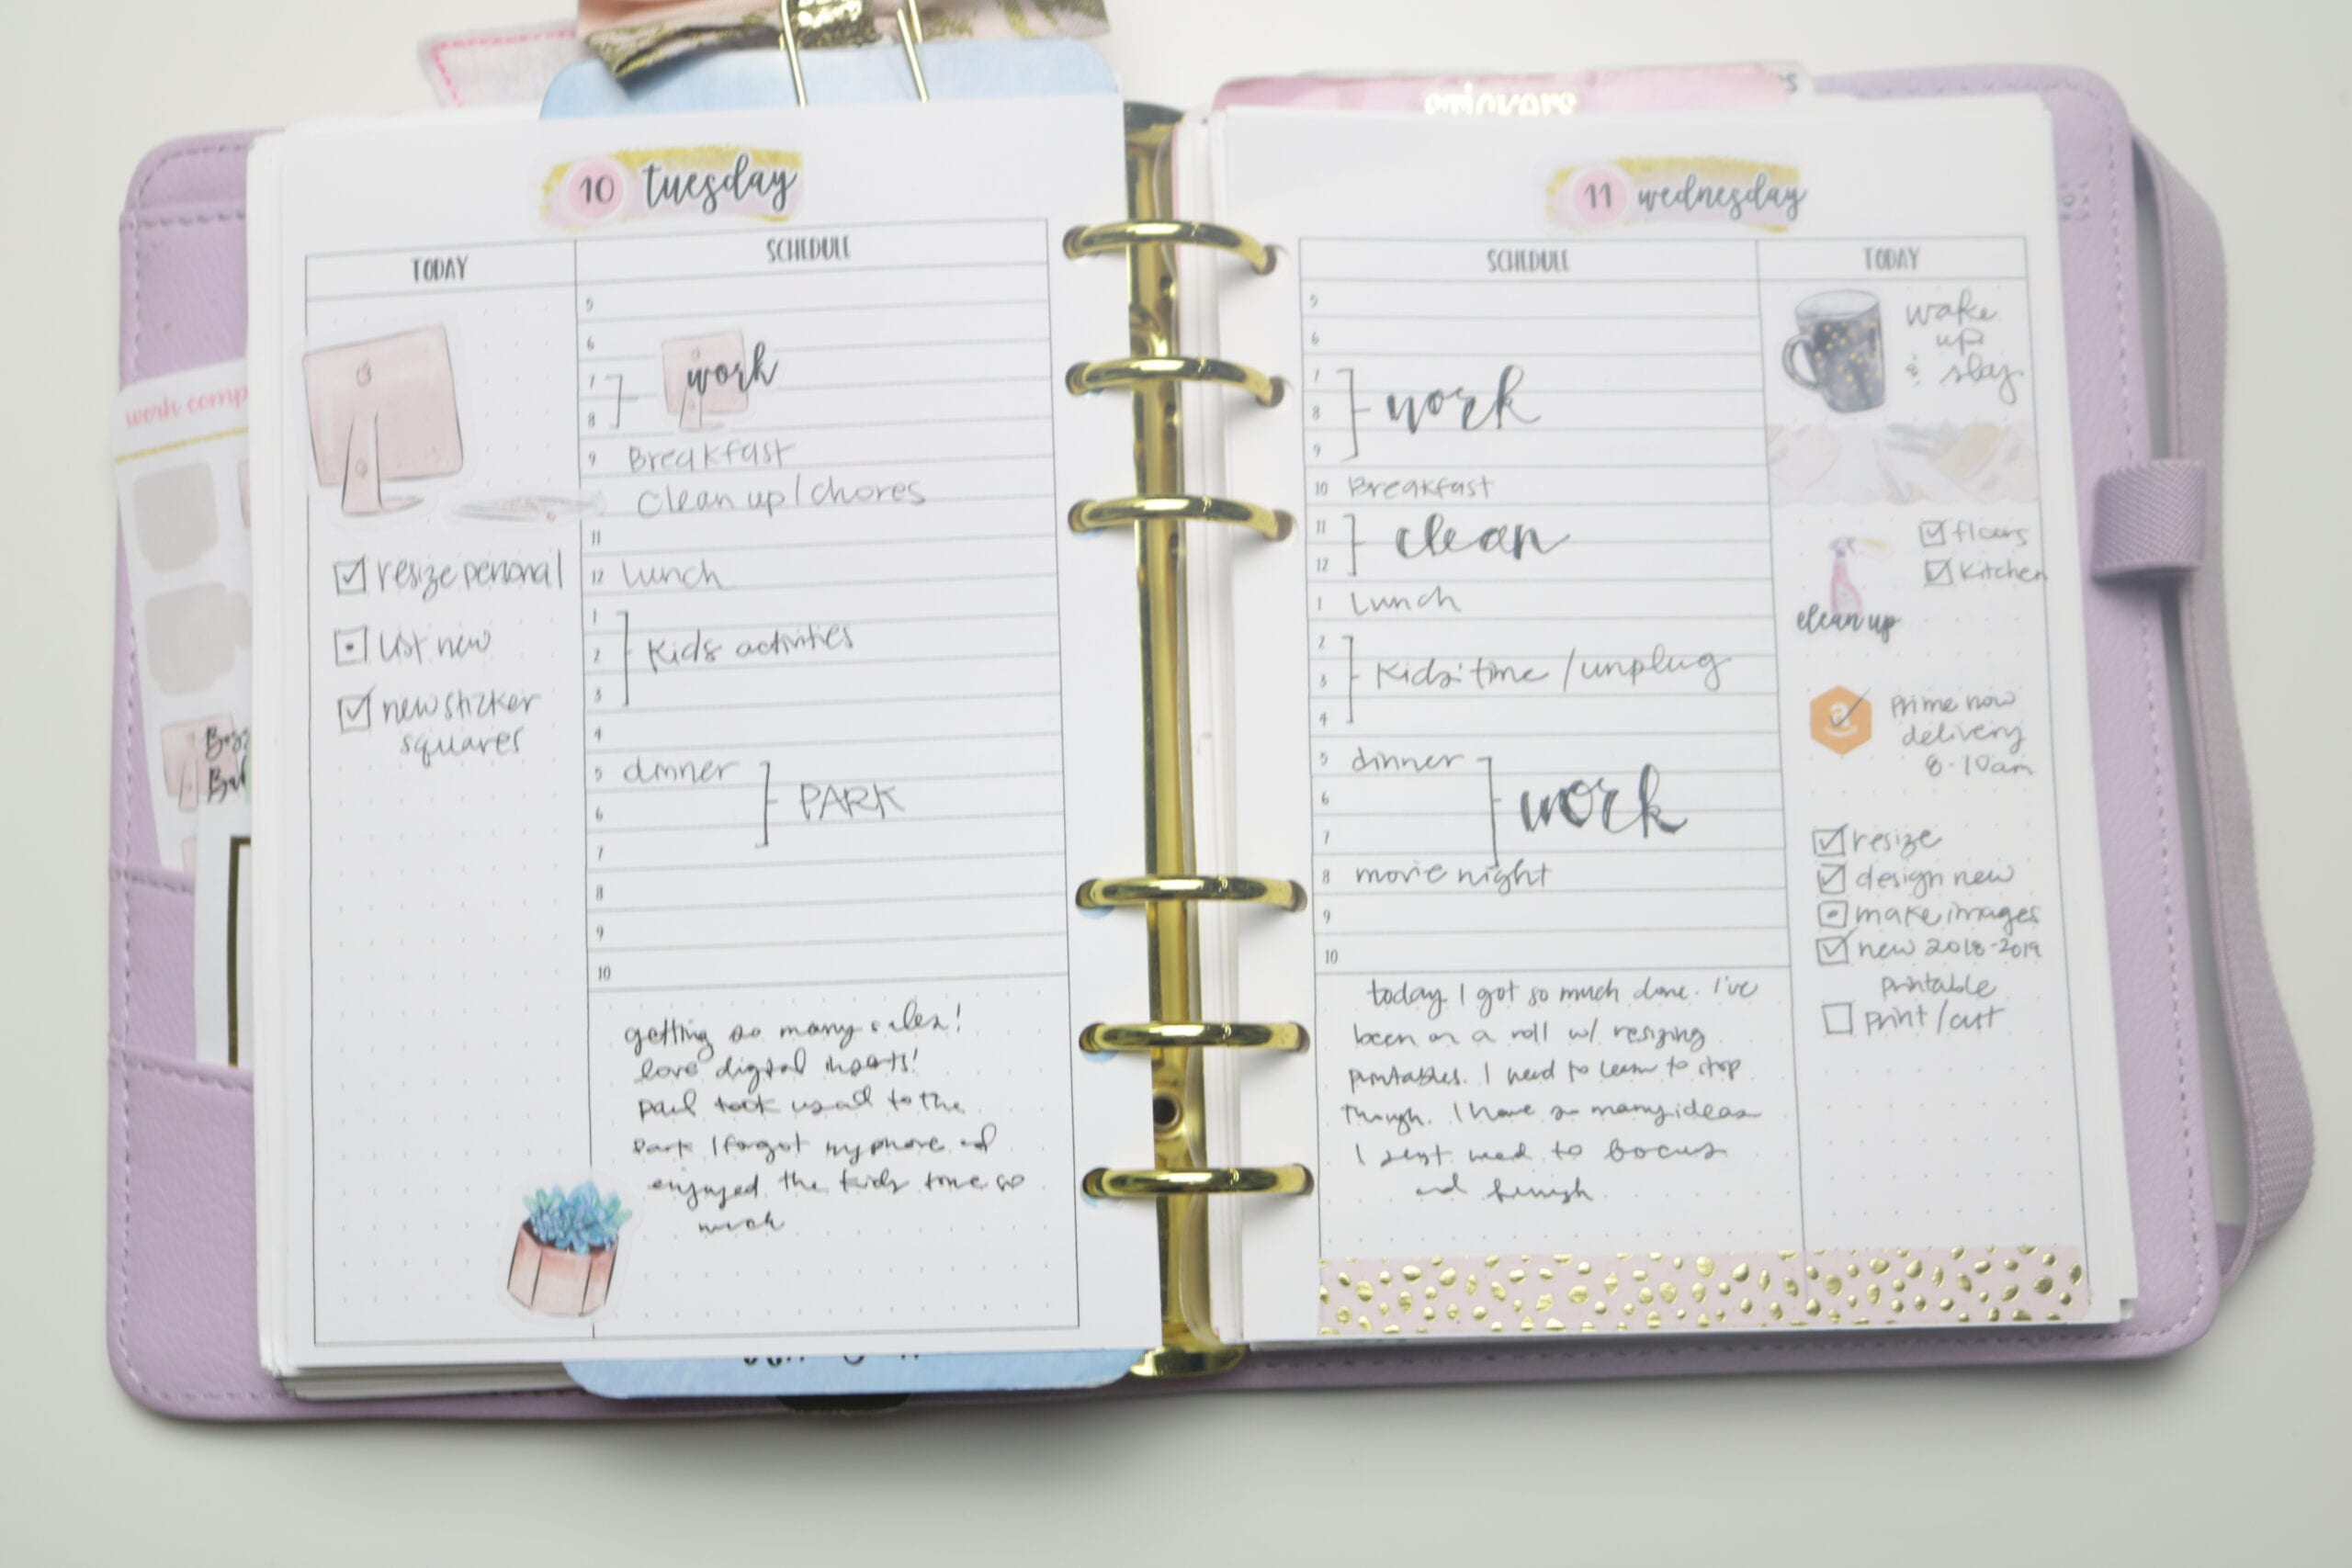 stickers
10 tuesday
TODAY
SCHEDULE
5
6
work
7
8
9 Breakfast
Clean up/chores
11
12 Lunch
1
2 Kids activities
3
4
5 dinner
6 PARK
7
8
9
10
work comp
☑ resize personal
⊡ list new
☑ new sticker
squares
getting so many sales!
love digital inserts!
Paul took us all to the
park I forgot my phone and
enjoyed the kids time so
much
11 wednesday
SCHEDULE
TODAY
5
6
7
8 work
9
10 Breakfast
11
clean
12
1 Lunch
2
3 Kids' time/unplug
4
5 dinner
6 work
7
8 movie night
9
10
today I got so much done. I've
been on a roll w/ resizing
printables. I need to learn to stop
though. I have so many ideas
I just need to focus
and finish
wake
up
& slay
☑ floors
☑ Kitchen
clean up
Prime now
delivery
8-10am
☑ resize
☑ design new
⊡ make images
☑ new 2018-2019
printable
☐ print/cut